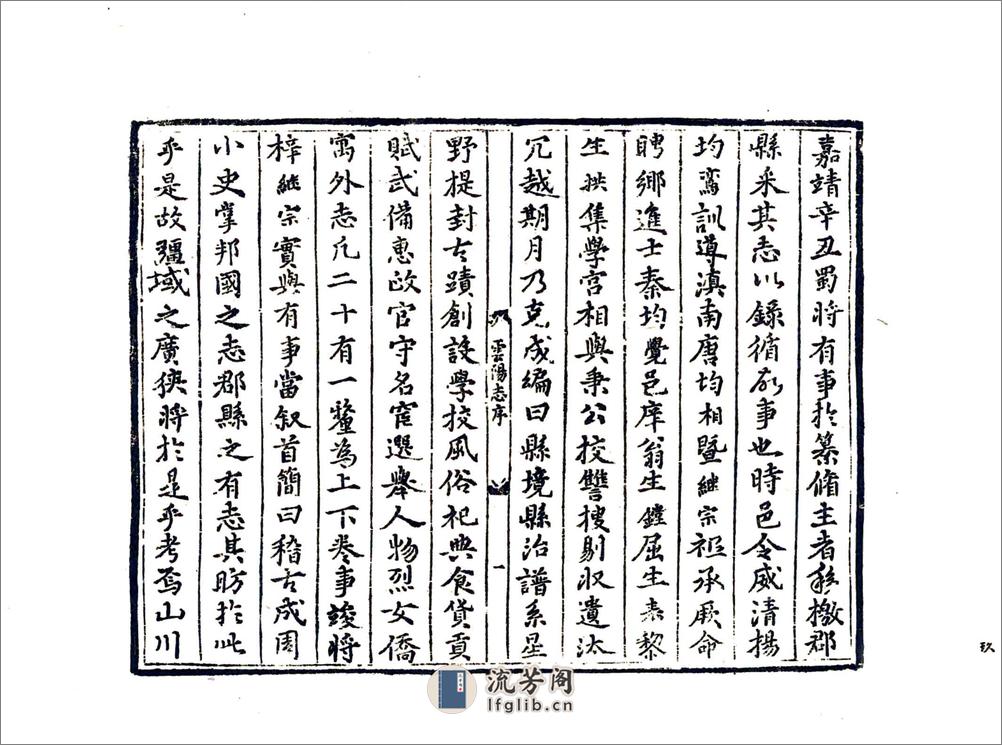 嘉靖辛丑蜀將有事於纂脩主者移檄郡
縣采其志以錄循故事也時邑令威清揚
均鸞訓導滇南唐均相暨継宗祖承厥命
聘鄉進士秦均覺邑庠翁生鏜屈生耒黎
生拱集學宮相與秉公校讐搜剔収遺汰
冗越期月乃克成編曰縣境縣治譜系星
雲陽志序
一
野提封古蹟創設學校風俗祀典食貨貢
賦武備惠政官守名宦選舉人物烈女僑
寓外志凢二十有一釐為上下巻事竣將
梓継宗實與有事當叙首簡曰稽古成周
小史掌邦國之志郡縣之有志其昉於此
乎是故疆域之廣狹將於是乎考焉山川
玖
流芳阁
lfglib.cn